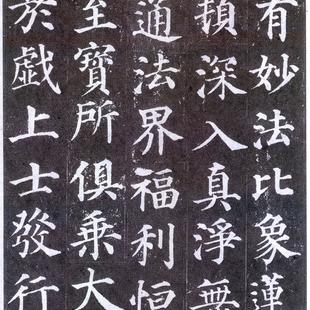 有妙法比象蓮
頓深入真淨無
通法界福利恒
至寶所俱乘大
於戲上士發行